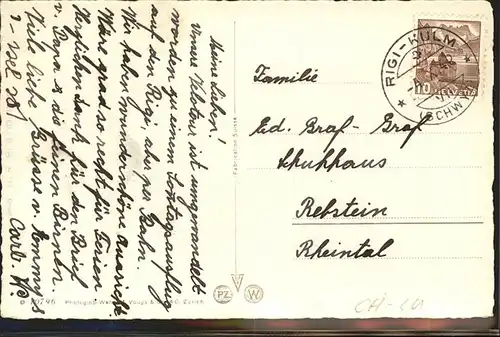 Meine Lieben!
Unsere Velotour ist umgewandelt
worden zu einem Sonntagsausflug
auf den Rigi, aber per Bahn.
Wir haben wunderschöne Aussicht
Wäre grad so recht für Ferien
Herzlichen Dank für den Brief
v. Papa & die feinen Birnli.
Viele liebe Grüsse v. Emmy &
Familie
Ed. Graf-Graf
Schuhhaus
Rebstein
Rheintal
RIGI-KULM
(SCHWYZ)
HELVETIA
10
Fabrication Suisse
PZ
W
10796